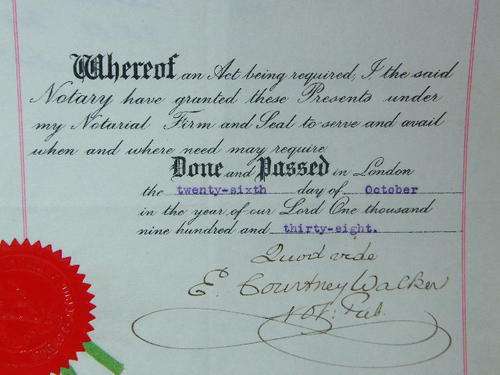 Whereof an Act being required, I the said
Notary have granted these Presents under
my Notarial Firm and Seal to serve and avail
when and where need may require
Done and Passed in London
the twenty-sixth day of October
in the year of our Lord One thousand
nine hundred and thirty-eight.
Quod vide
E. Courtney Walker
Not. Pub.